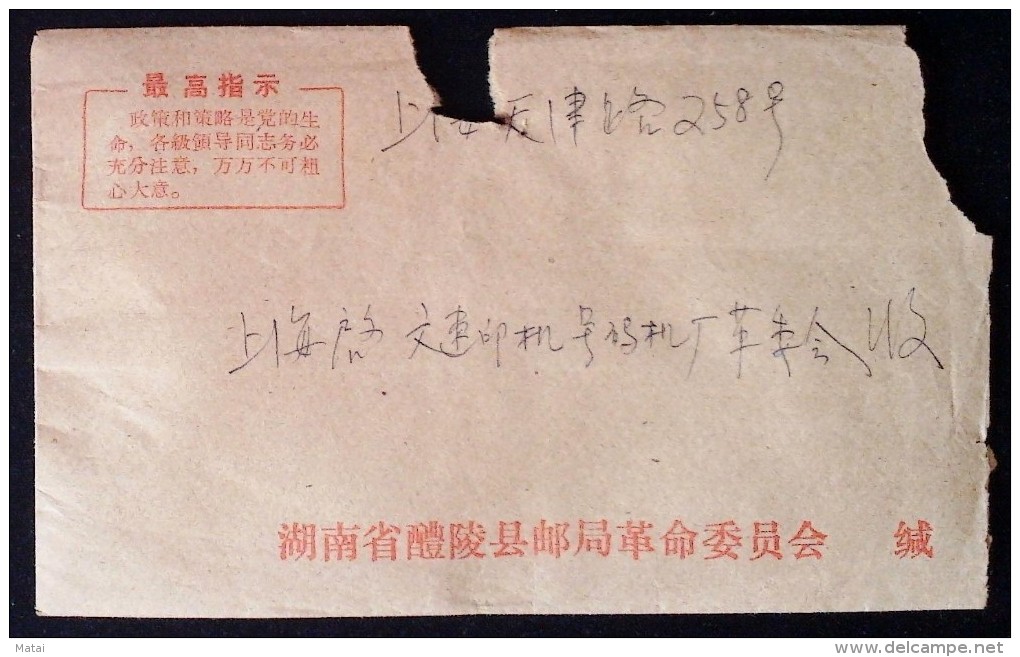 最高指示
政策和策略是党的生
命，各級領导同志务必
充分注意，万万不可粗
心大意。
上海天津路258号
上海启文速印机号码机厂革委会收
湖南省醴陵县邮局革命委员会 缄
Matai
delcampe.net